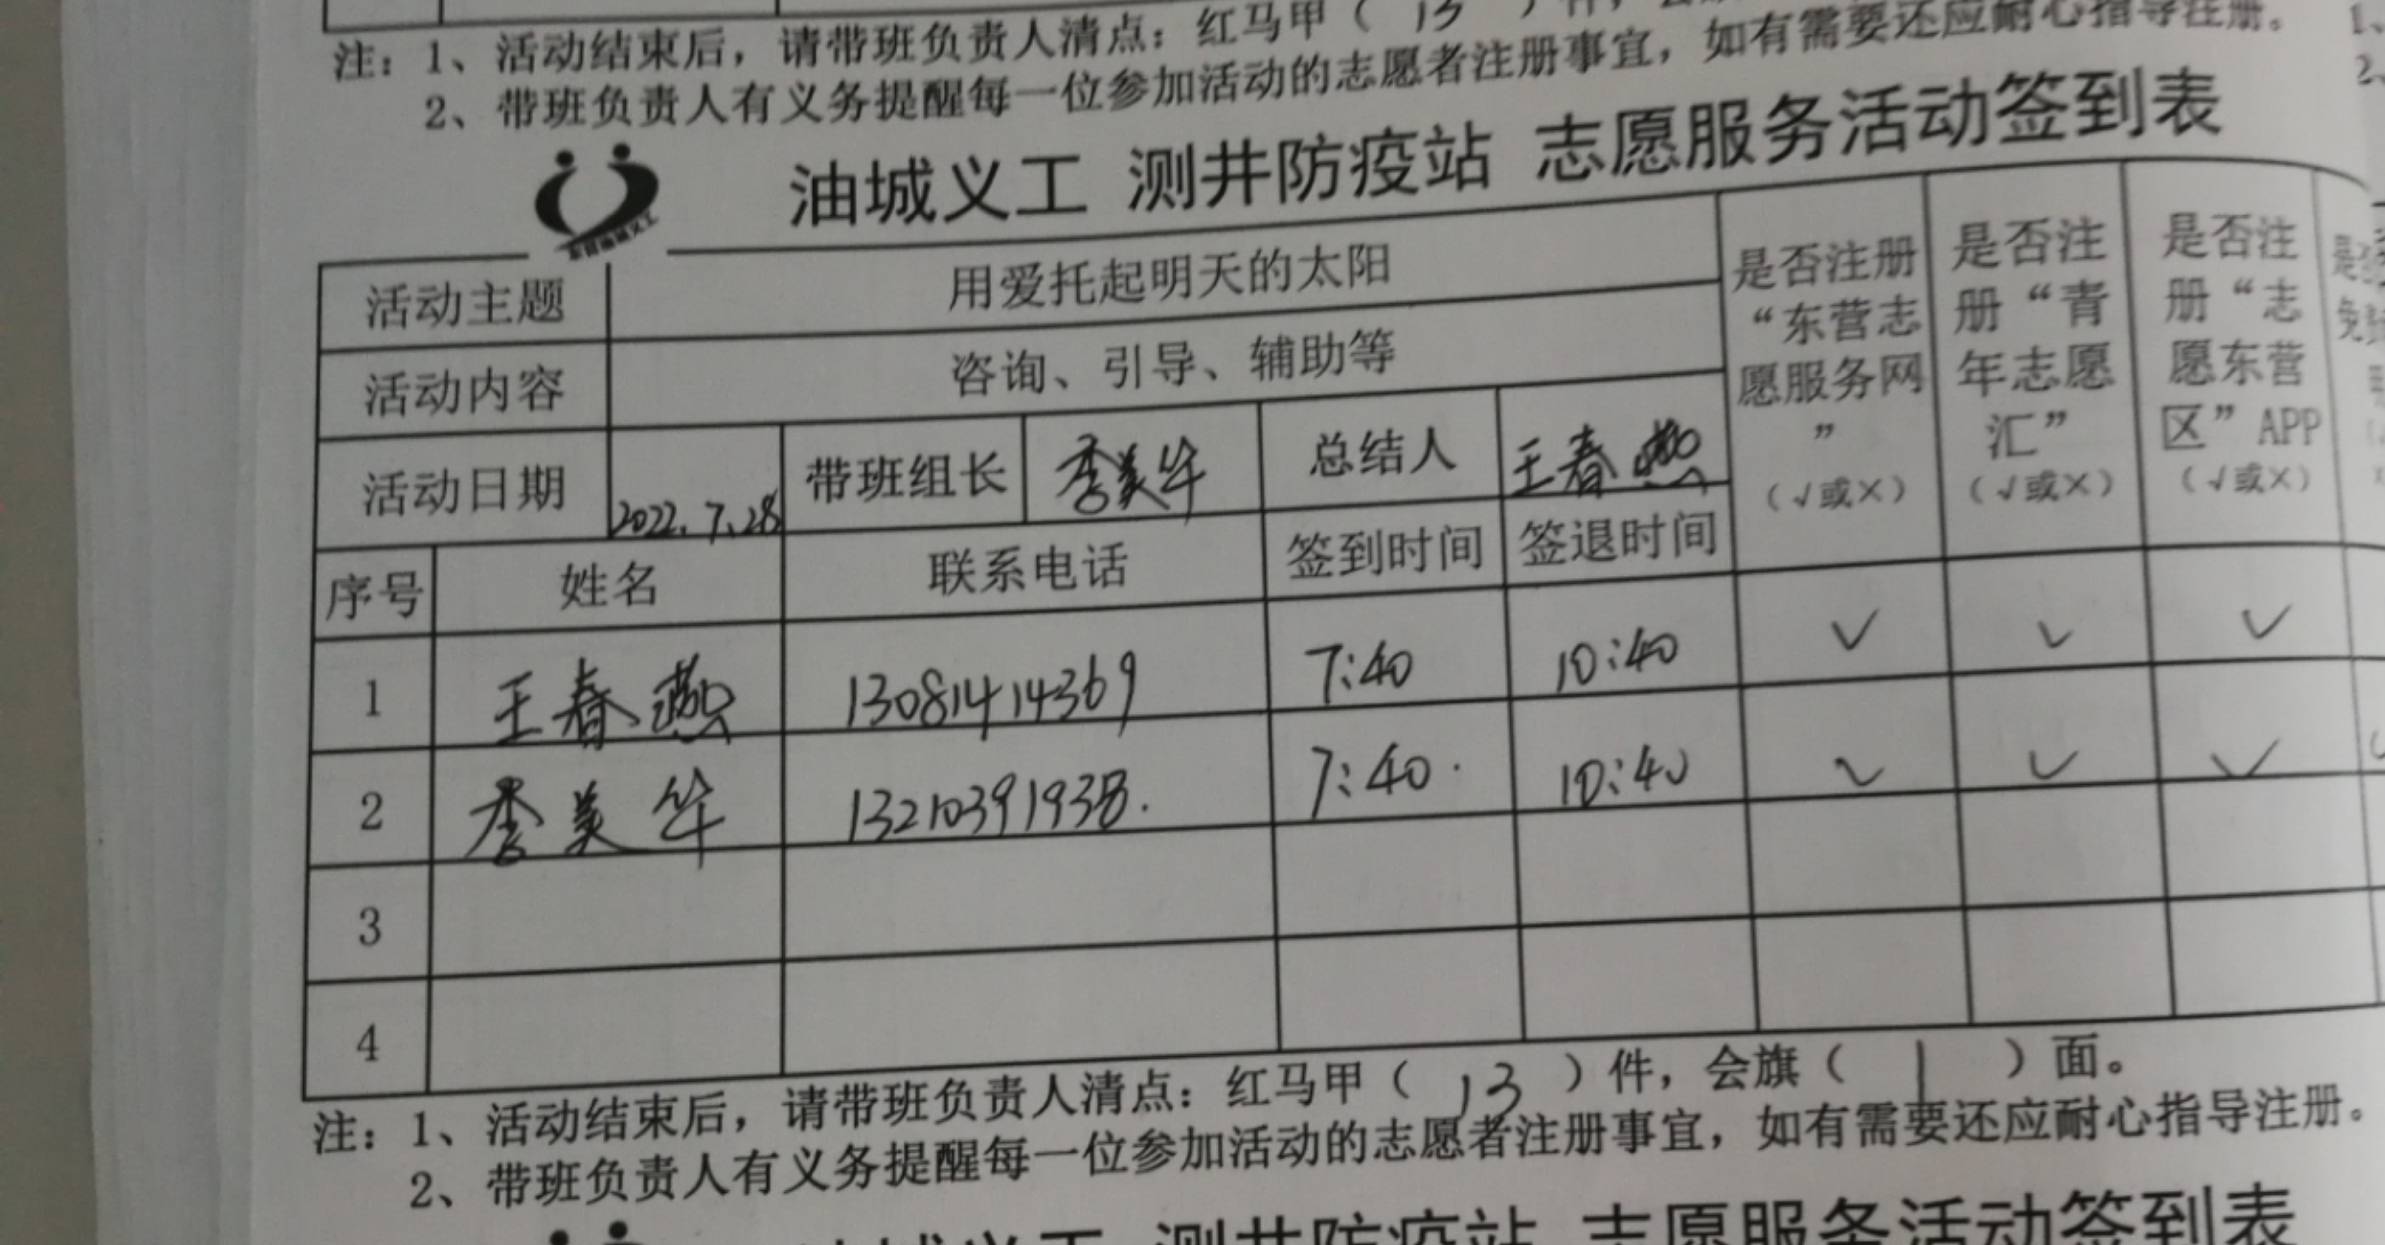 注：1、活动结束后，请带班负责人清点：红马甲（ 13 ）件，
2、带班负责人有义务提醒每一位参加活动的志愿者注册事宜，如有需要还应耐心指导注册。
油城义工 测井防疫站 志愿服务活动签到表
活动主题 用爱托起明天的太阳
活动内容 咨询、引导、辅助等
活动日期 2022.7.28 带班组长 季美华 总结人 王春燕
是否注册“东营志愿服务网”（√或×）
是否注册“青年志愿汇”（√或×）
是否注册“志愿东营区”APP（√或×）
序号 姓名 联系电话 签到时间 签退时间
1 王春燕 13081414369 7:40 10:40 √ √ √
2 季美华 13210391938. 7:40 10:40 √ √ √
3
4
注：1、活动结束后，请带班负责人清点：红马甲（ 13 ）件，会旗（ 1 ）面。
2、带班负责人有义务提醒每一位参加活动的志愿者注册事宜，如有需要还应耐心指导注册。
油城义工 测井防疫站 志愿服务活动签到表